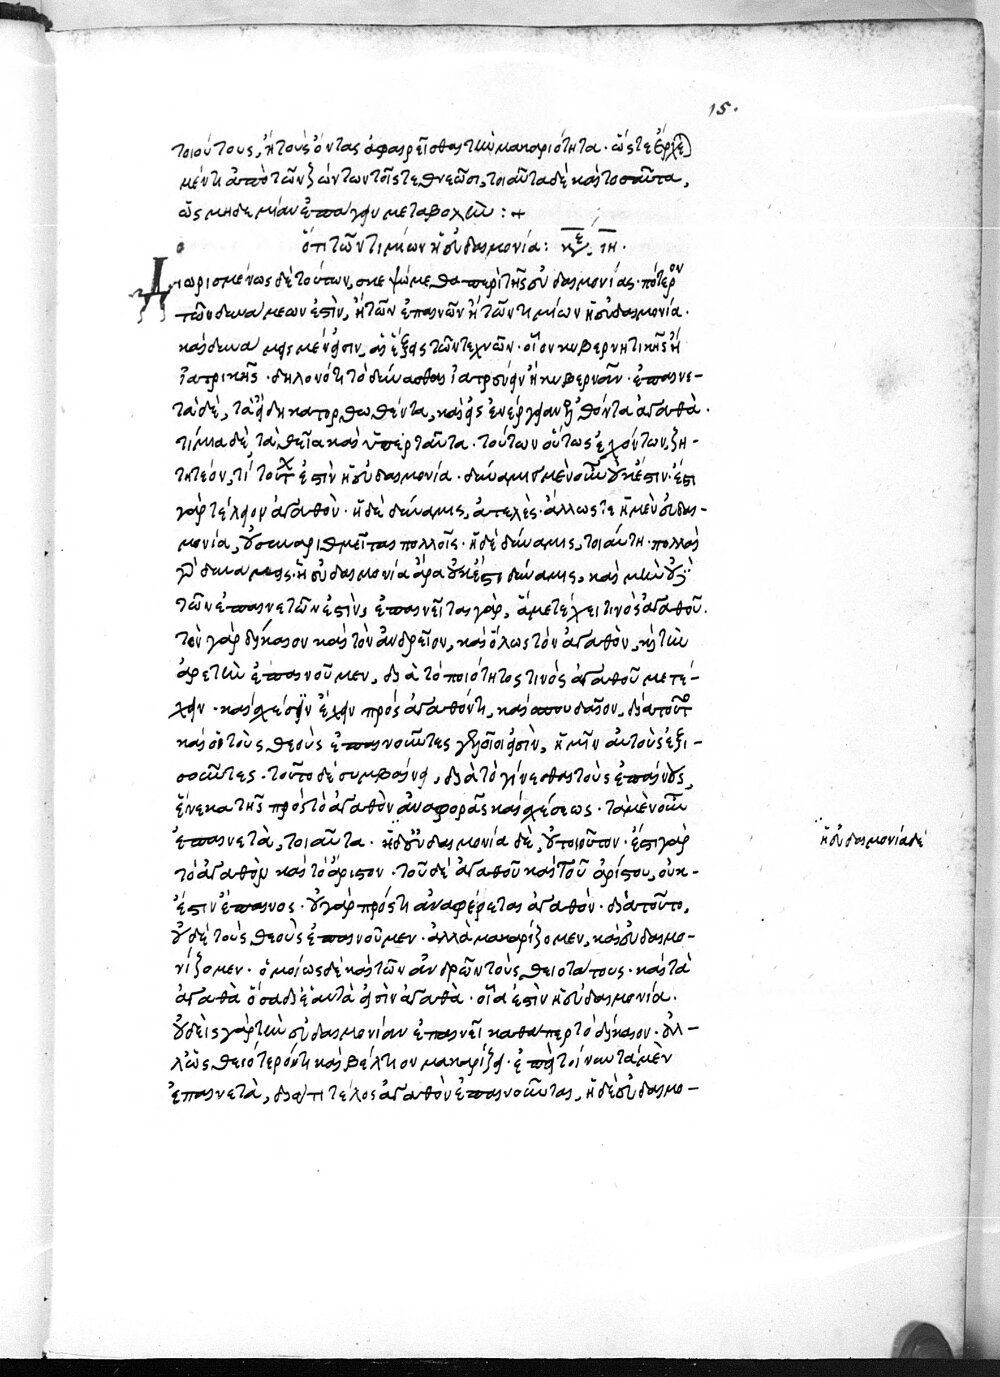 15.
τοιούτους, ἢ τοὺς ὄντας ἀφαιρεῖσθαι τὴν μακαριότητα. ὥστε ἔρχε
μέν τι ἀπὸ τῶν ζώντων τοῖς τεθνεῶσι, τοιαῦτα δὲ καὶ τοσαῦτα,
ὡς μηδεμίαν ἐπάγειν μεταβολήν :+
ὅτι τῶν τιμίων ἡ εὐδαιμονία: κεφ. ιη.
Διωρισμένως δὲ τούτων, σκεψώμεθα περὶ τῆς εὐδαιμονίας. πότερον
τῶν δυναμεων ἐστὶν, ἢ τῶν ἐπαινῶν ἢ τῶν τιμίων ἡ εὐδαιμονία.
καὶ δυνάμεις μέν εἰσιν, αἱ ἕξεις τῶν τεχνῶν. οἷον κυβερνητικῆς ἢ
ἰατρικῆς. δηλονότι τὸ δύνασθαι ἰατρεύειν ἢ κυβερνᾶν. ἐπαινε-
τὰ δὲ, τὰ ἤδη κατορθωθέντα, καὶ εἰς ἐνέργειαν ἐλθόντα ἀγαθά.
τίμια δὲ τὰ θεῖα καὶ ὑπὲρ ταῦτα. τούτων οὕτως ἐχόντων, ζη-
τητέον, τί τούτων ἐστὶν ἡ εὐδαιμονία. δύναμις μὲν οὖν οὐκ ἔστιν. ἔστι
γὰρ τέλειον ἀγαθὸν. ἡ δὲ δύναμις, ἀτελὲς. ἄλλως τε ἡ μὲν εὐδαι-
μονία, οὐ συναριθμεῖται πολλοῖς. ἡ δὲ δύναμις, τοιαύτη. πολλαὶ
γὰρ δυνάμεις. ἡ εὐδαιμονία ἄρα οὐκ ἔστι δύναμις, καὶ μὴν οὐδὲ
τῶν ἐπαινετῶν ἐστὶν, ἐπαινεῖται γὰρ, ἃ μετέχει τινὸς ἀγαθοῦ.
τὸν γὰρ δίκαιον καὶ τὸν ἀνδρεῖον, καὶ ὅλως τὸν ἀγαθὸν, καὶ τὴν
ἀρετὴν ἐπαινοῦμεν, διὰ τὸ ποιότητος τινὸς ἀγαθοῦ μετέ-
χειν. καὶ σχέσιν ἔχειν πρὸς ἀγαθόν τι, καὶ σπουδαῖον, διὰ τοῦτο
καὶ οἱ τοὺς θεοὺς ἐπαινοῦντες γελοῖοι εἰσὶν, ἡμῖν αὐτοὺς ἐξι-
σοῦντες. τοῦτο δὲ συμβαίνει, διὰ τὸ γίνεσθαι τοὺς ἐπαίνους,
ἕνεκα τῆς πρὸς τὸ ἀγαθὸν ἀναφορᾶς καὶ σχέσεως. τὰ μὲν οὖν
ἐπαινετὰ, τοιαῦτα. ἡ εὐδαιμονία δὲ, οὐ τοιοῦτον. ἔστι γὰρ
ἡ εὐδαιμονία δέ
τὸ ἀγαθὸν καὶ τὸ ἄριστον. τοῦ δὲ ἀγαθοῦ καὶ τοῦ ἀρίστου, οὐκ-
ἔστιν ἔπαινος. οὐ γὰρ πρός τι ἀναφέρεται ἀγαθόν. διὰ τοῦτο,
οὐδὲ τοὺς θεοὺς ἐπαινοῦμεν. ἀλλὰ μακαρίζομεν, καὶ εὐδαιμο-
νίζομεν. ὁμοίως δὲ καὶ τῶν ἀνδρῶν τοὺς θειοτάτους. καὶ τὰ
ἀγαθὰ ὅσα δι' ἑαυτὰ εἰσὶν ἀγαθὰ. οἷα ἐστὶν ἡ εὐδαιμονία.
οὐδεὶς γὰρ τὴν εὐδαιμονίαν ἐπαινεῖ καθάπερ τὸ δίκαιον. ἀλ-
λ' ὡς θειότερόν τι καὶ βέλτιον μακαρίζει. ἐπεὶ τοίνυν τὰ μὲν
ἐπαινετὰ, διά τι τέλος ἀγαθὸν ἐπαινοῦνται, ἡ δὲ εὐδαιμο-